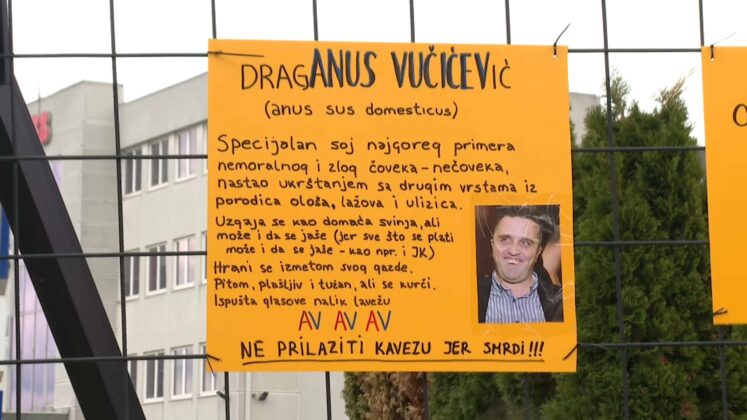 DRAGANUS VUČIĆEVIĆ
(anus sus domesticus)
Specijalan soj najgoreg primera
nemoralnog i zlog čoveka-nečoveka,
nastao ukrštanjem sa drugim vrstama iz
porodica ološa, lažova i ulizica.
Uzgaja se kao domaća svinja, ali
može i da se jaše (jer sve što se plati
može i da se jaše - kao npr. i JK)
Hrani se izmetom svog gazde.
Pitom, plašljiv i tužan, ali se kurči.
Ispušta glasove nalik lavežu
AV AV AV
NE PRILAZITI KAVEZU JER SMRDI!!!